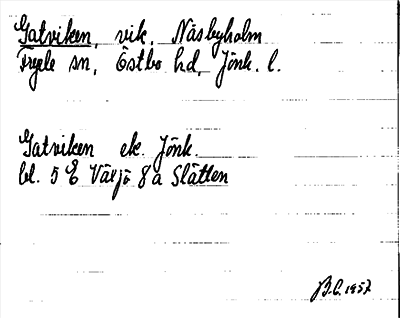 Gatviken, vik, Näsbyholm
Fryele sn, Östbo hd, Jönk. l.
Gatviken ek. Jönk.
bl. 5 E Växjö 8 a Slätten
B.C. 1957